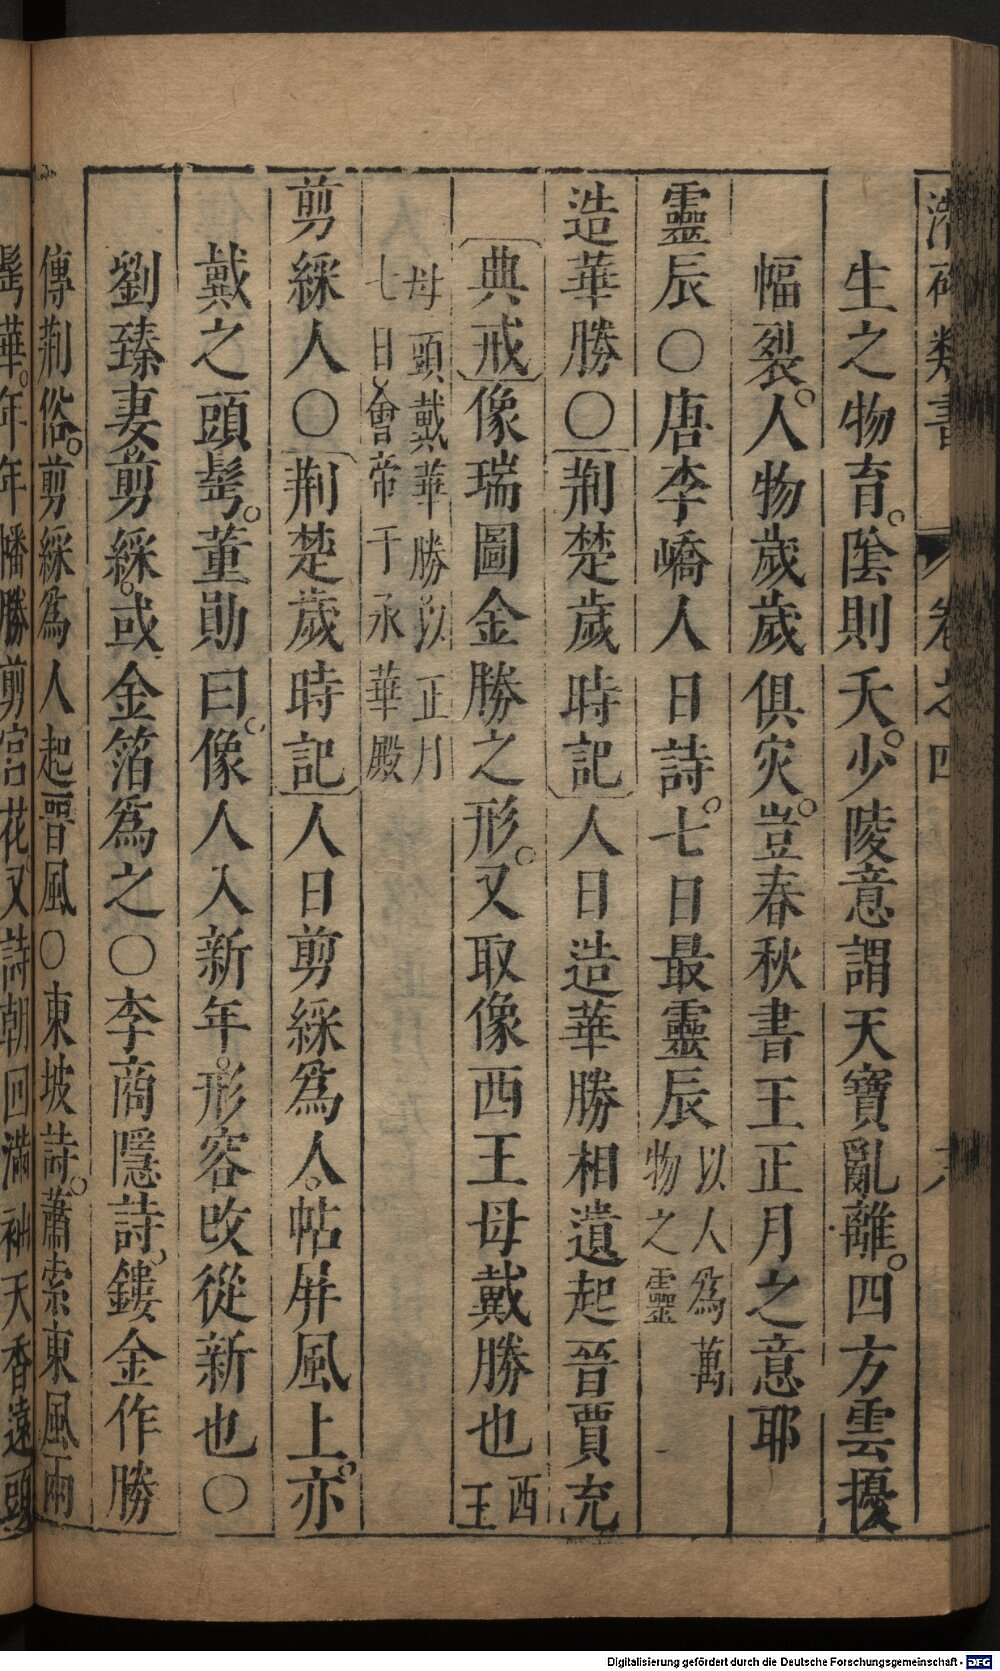 類書 卷之四
生之物育。陰則夭。少陵意謂天寶亂離。四方雲擾
幅裂。人物歲歲俱灾。豈春秋書王正月之意耶
靈辰〇唐李嶠人日詩。七日最靈辰以人爲萬物之靈
造華勝〇荆楚歲時記人日造華勝相遺起晉賈充
典戒像瑞圖金勝之形。又取像西王母戴勝也西王
母頭戴華勝以正月七日會帝于承華殿
剪綵人〇荆楚歲時記人日剪綵爲人。帖屏風上。亦
戴之頭髩。董勛曰。像人入新年。形容改從新也〇
劉臻妻剪綵。或金箔爲之〇李商隱詩。鏤金作勝
傳荆俗。剪綵爲人起晉風〇東坡詩。蕭索東風兩
髩華。年年幡勝剪宮花。又詩朝回滿袖天香遠頭
Digitalisierung gefördert durch die Deutsche Forschungsgemeinschaft - DFG